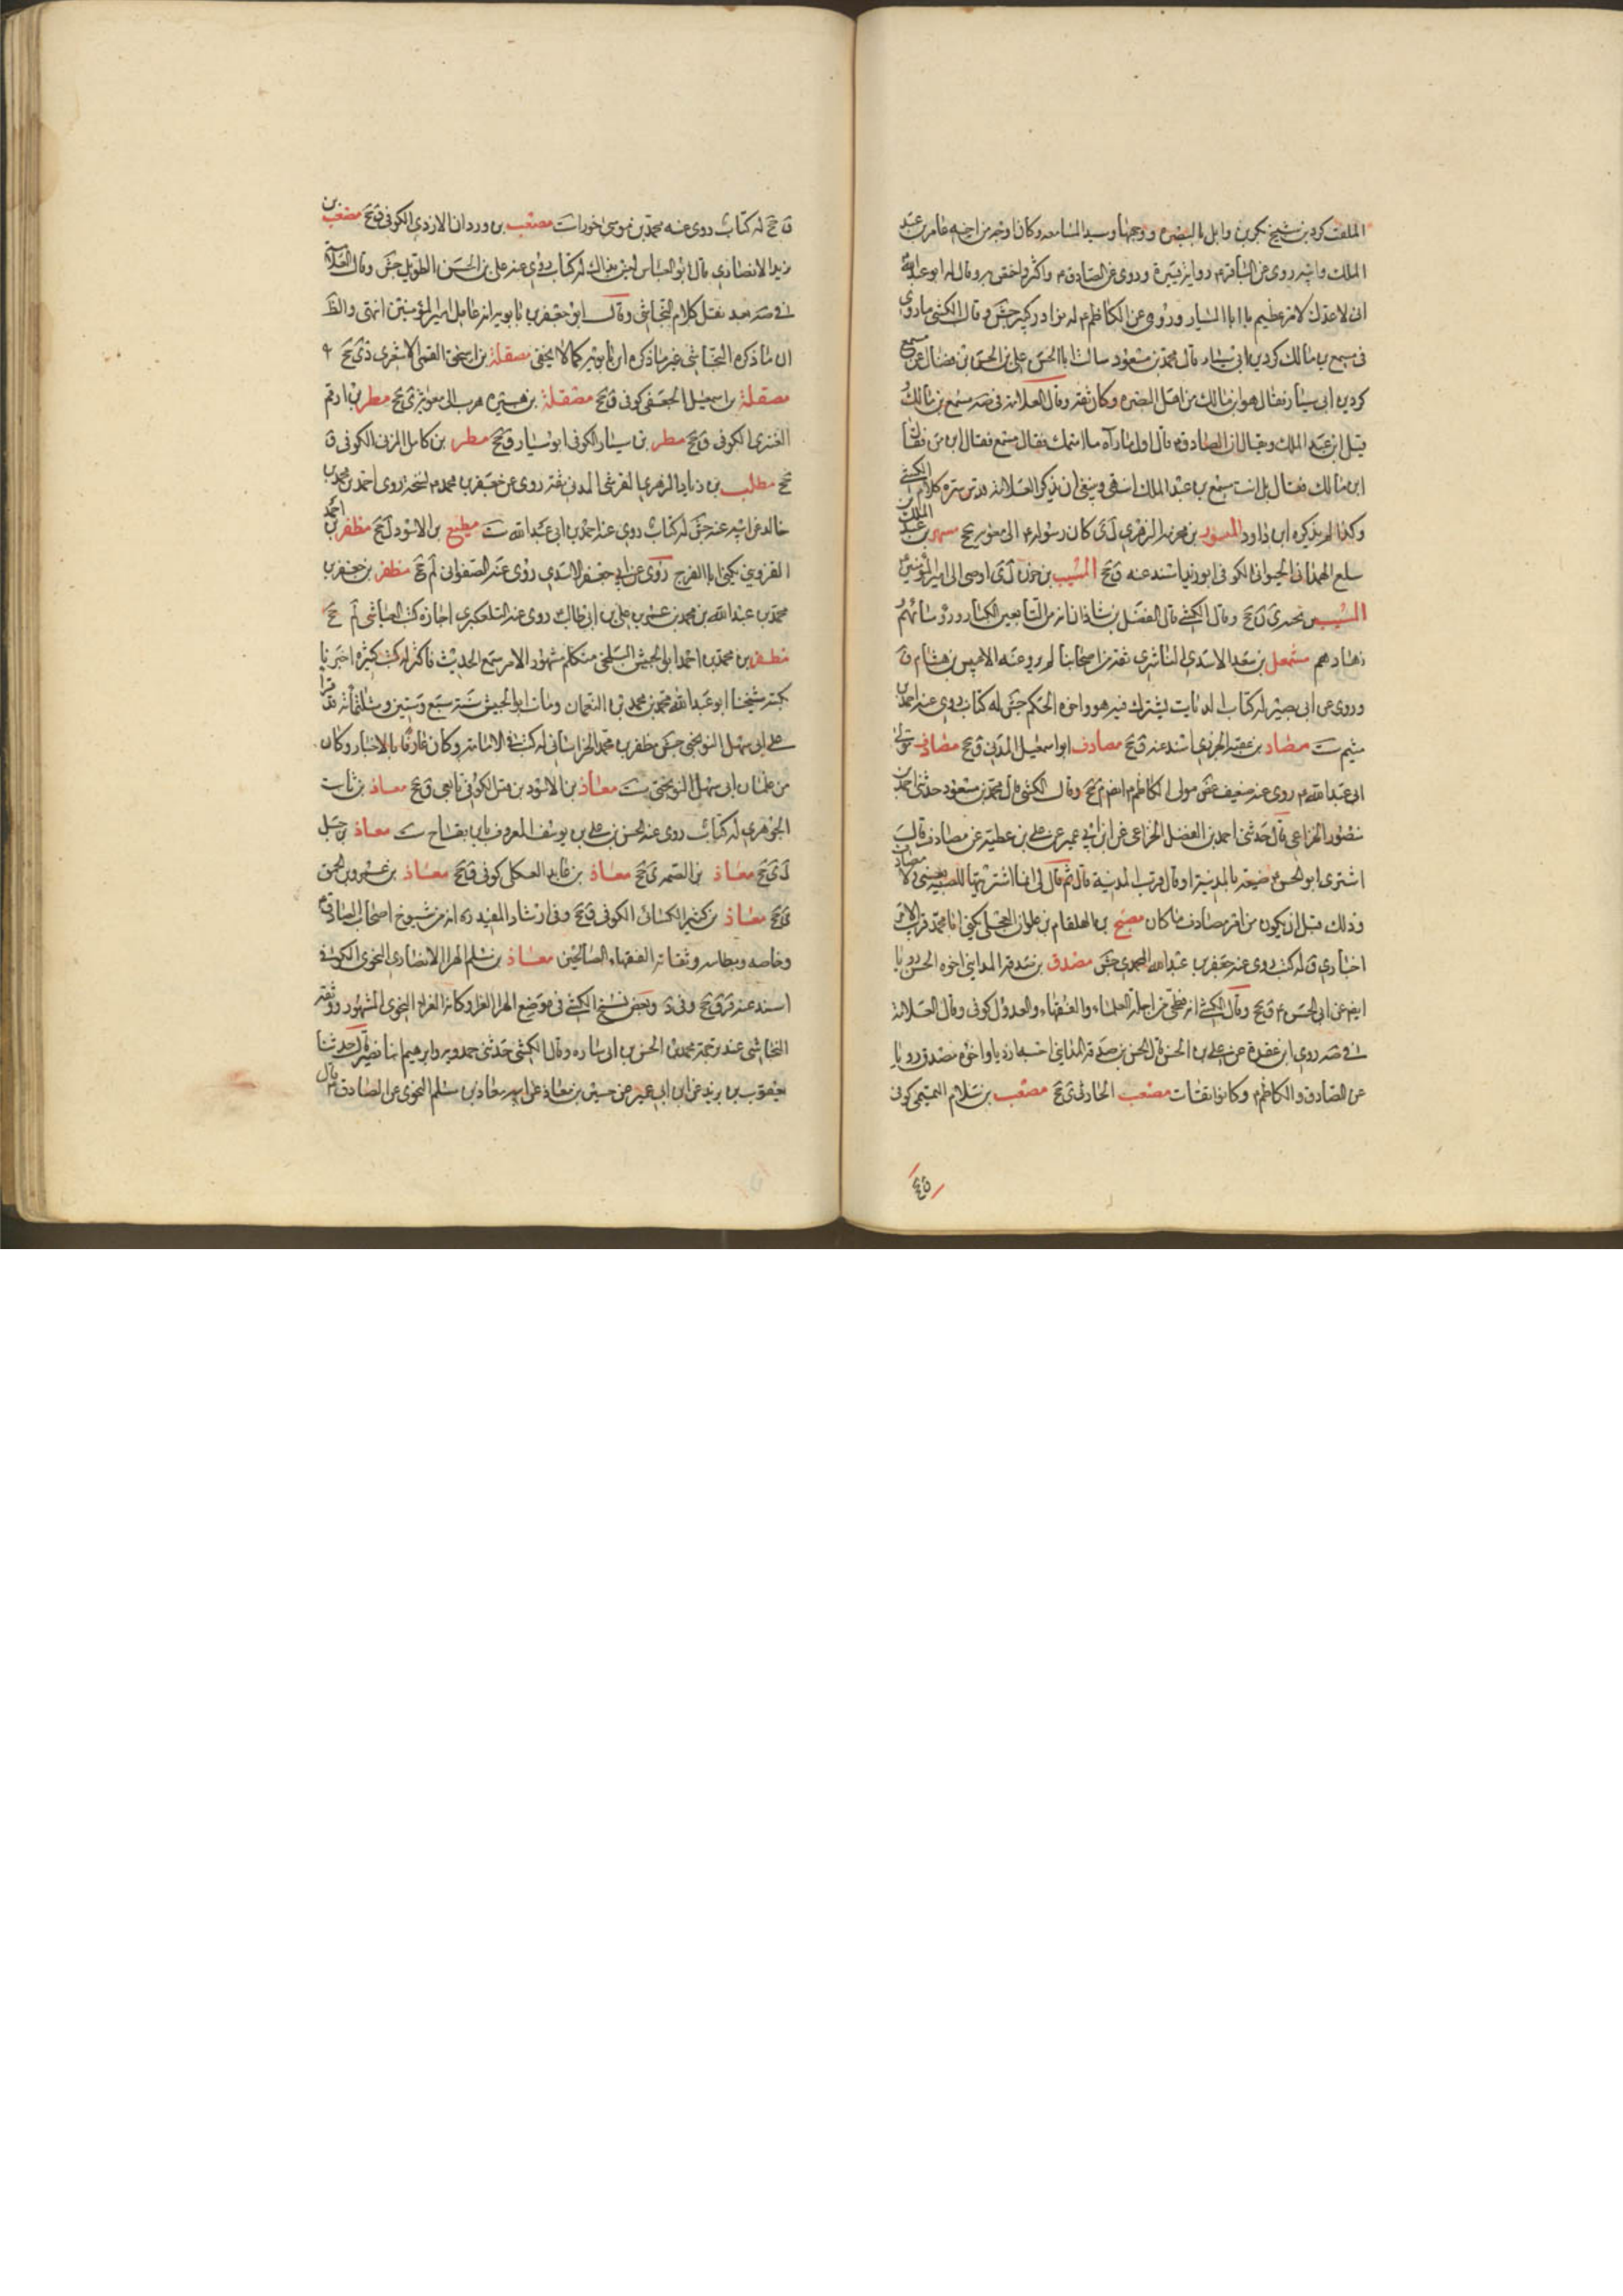 الملقب كردين شيخ بكر بن وايل بالبصرة ووجهها وسيد المسامعة وكان اوجه من اخيه عامر بن عبد
الملك وابيه روى عن الباقر م رواية يسيرة وروى عن الصادق م واكثر واختص به وقال له ابو عبد الله
انى لاعدك لامر عظيم يا ابا السيار وروى عن الكاظم م له نوادر كبير جش وقال الكشى ما روى
فى مسمع بن مالك كردين ابى سيار قال محمد بن مسعود سالت ابا الحسن على بن الحسن بن فضال عن مسمع
كردين ابى سيار فقال هو ابن مالك من اهل البصرة وكان ثقة وقال العلامة فى صه مسمع بن مالك
قيل ابن عبد الملك ويقال ان الصادق م قال اول ما رآه ما اسمك فقال مسمع فقال ابن من فقال
ابن مالك فقال بل انت مسمع بن عبد الملك انتهى وينبغى ان يذكر العلامة قدس سره كلام الكشى
وكذا لم يذكره ابن داود المسور بن مخرمة الزهرى ل ى كان رسوله م الى معوية جخ مسهر بن عبد الملك
بن سلع الهمدانى الحيوانى الكوفى ابو زيد اسند عنه ق جخ المسيب بن حزن ل ى اوصى الى امير المؤمنين
المسيب بن نجبة ى ن جخ وقال الكشى قال الفضل بن شاذان انه من التابعين الكبار ورؤسائهم
وزهادهم مشمعل بن سعد الاسدى الناشرى ثقة من اصحابنا لم يرو عنه الا عبيس بن هشام ق
وروى عن ابى بصير له كتاب الديات يشترك فيه هو واخوه الحكم جش له كتاب روى عنه احمد بن
ميثم ست مصادف ابو اسمعيل المدنى ق جخ مصادف مولى
ابى عبد الله م روى عنه ضعيف غض مولى الكاظم م ايضا م جخ وقال الكشى قال محمد بن مسعود حدثنى احمد بن
منصور الخزاعى قال حدثنى احمد بن الفضل الخزاعى عن ابن ابى عمير عن على بن عطية عن مصادف قال
اشترى ابو الحسن م ضيعة بالمدينة او قال قرب المدينة قال ثم قال لى انما اشتريتها للصبية يعنى ولد مصادف
وذلك قبل ان يكون من امر مصادف ما كان مصبح بن الهلقام بن علوان العجلى يكنى ابا محمد قريب الامر
اخبارى ق له كتب روى عنه جعفر بن عبد الله المحمدى جش مصدق بن صدقة المداينى اخوه الحسن رويا
ايضا عن ابى الحسن م ق جخ وقال الكشى انه فطحى من اجلة العلماء والفقهاء والعدول كوفى وقال العلامة
فى صه روى ابن عقدة عن على بن الحسن قال الحسن بن صدقة المداينى احسبه ازديا واخوه مصدق رويا
عن الصادق والكاظم م وكانوا ثقات مصعب الحارثى ى جخ مصعب بن سلام التميمى كوفى
ق جخ له كتاب روى عنه محمد بن موسى خوراست مصعب بن وردان الازدى الكوفى ق جخ مصعب بن
يزيد الانصارى قال ابو العباس ليس بذاك له كتاب روى عنه على بن الحسن الطويل جش وقال العلامة
فى صه بعد نقل كلام النجاشى وقال ابو جعفر بن بابويه انه عامل امير المؤمنين انتهى والظ
ان ما ذكره النجاشى غير ما ذكره ابن بابويه كما لا يخفى مصقلة بن اسحق القمى الاشعرى دى جخ
مصقلة بن اسمعيل الجعفى كوفى ق جخ مصقلة بن هبيرة هرب الى معوية ى جخ مطر بن ارقم
العنزى الكوفى ق جخ مطر بن سيار الكوفى ابو سيار ق جخ مطر بن كامل المزنى الكوفى ق
جخ مطلب بن زياد الزهرى القرشى المدنى ثقة روى عن جعفر بن محمد م نسخة روى احمد بن محمد بن
خالد عن ابيه عنه جش له كتاب روى عنه احمد بن ابى عبد الله ست مطيع بن الاسود ل جخ مظفر بن احمد
القزوينى يكنى ابا الفرج روى عن ابى جعفر الاسدى روى عنه الصفوانى لم جخ مظفر بن جعفر بن
محمد بن عبد الله بن محمد بن عمر بن على بن ابى طالب م روى عنه التلعكبرى اجازة كتب العياشى لم جخ
مظفر بن محمد بن احمد ابو الجيش البلخى متكلم مشهور الامر سمع الحديث فاكثر له كتب كثيرة اخبرنا
بكتبه شيخنا ابو عبد الله محمد بن محمد بن النعمان ومات ابو الجيش سنة سبع وستين وثلثمائة وقد قرا
على ابى سهل النوبختى جش مظفر بن محمد الخراسانى له كتب فى الامامة وكان عارفا بالاخبار وكان
من غلمان ابى سهل النوبختى ست معاذ بن الاسود بن قيس الكوفى تابعى ق جخ معاذ بن ثابت
الجوهرى له كتاب روى عنه الحسن بن على بن يوسف المعروف بابن بقاح ست معاذ بن جبل
ل ى جخ معاذ بن الصمة ى جخ معاذ بن عابد العكلى كوفى ق جخ معاذ بن عمرو بن الجموح
ى جخ معاذ بن كثير الكسائى الكوفى ق جخ وفى ارشاد المفيد ره انه من شيوخ اصحاب الصادق م
وخاصته وبطانته وثقاته الفقهاء الصالحين معاذ بن مسلم الهرا الانصارى النحوى الكوفى
اسند عنه قر ق جخ وفى د وبعض نسخ الكشى فى موضع الهرا الفرا وكانه الفراء النحوى المشهور ووثقه
النجاشى عند ترجمة محمد بن الحسن بن ابى ساره وقال الكشى حدثنى حمدويه وابرهيم ابنا نصير قال حدثنا
يعقوب بن يزيد عن ابن ابى عمير عن حسين بن معاذ عن ابيه معاذ بن مسلم النحوى عن الصادق م قال
ق جخ